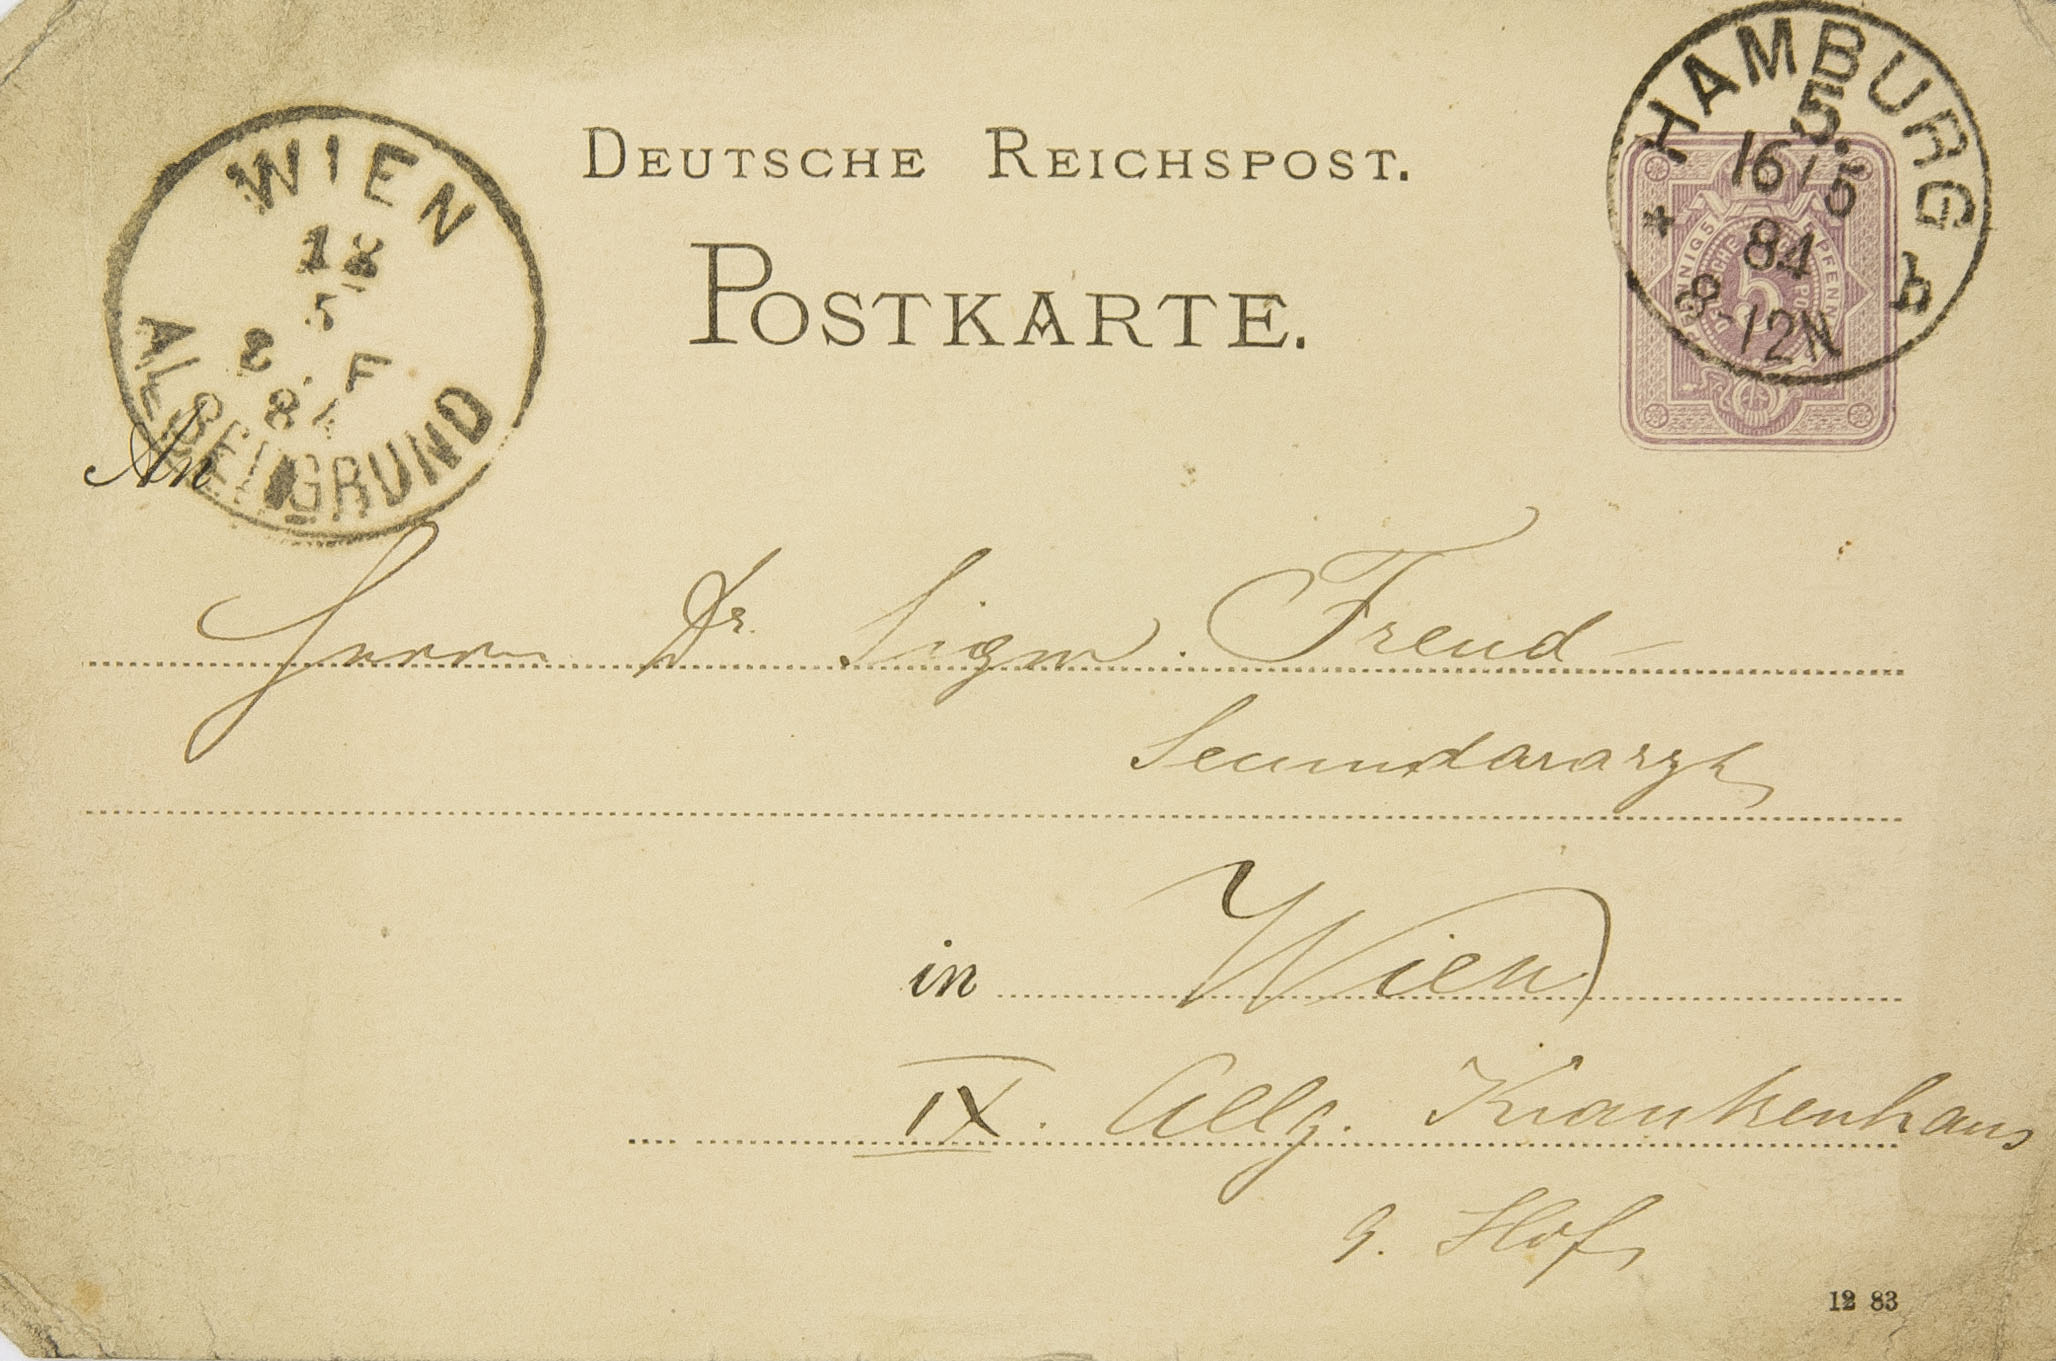 DEUTSCHE REICHSPOST.
POSTKARTE.
WIEN
18
5
8. F
84
ALSERGRUND
* HAMBURG b
5.
16/5
84
8-12N
5
An
Herrn Dr. Sigm. Freud
Secundararzt
in Wien
IX. Allg. Krankenhaus
9. Hof
12 83